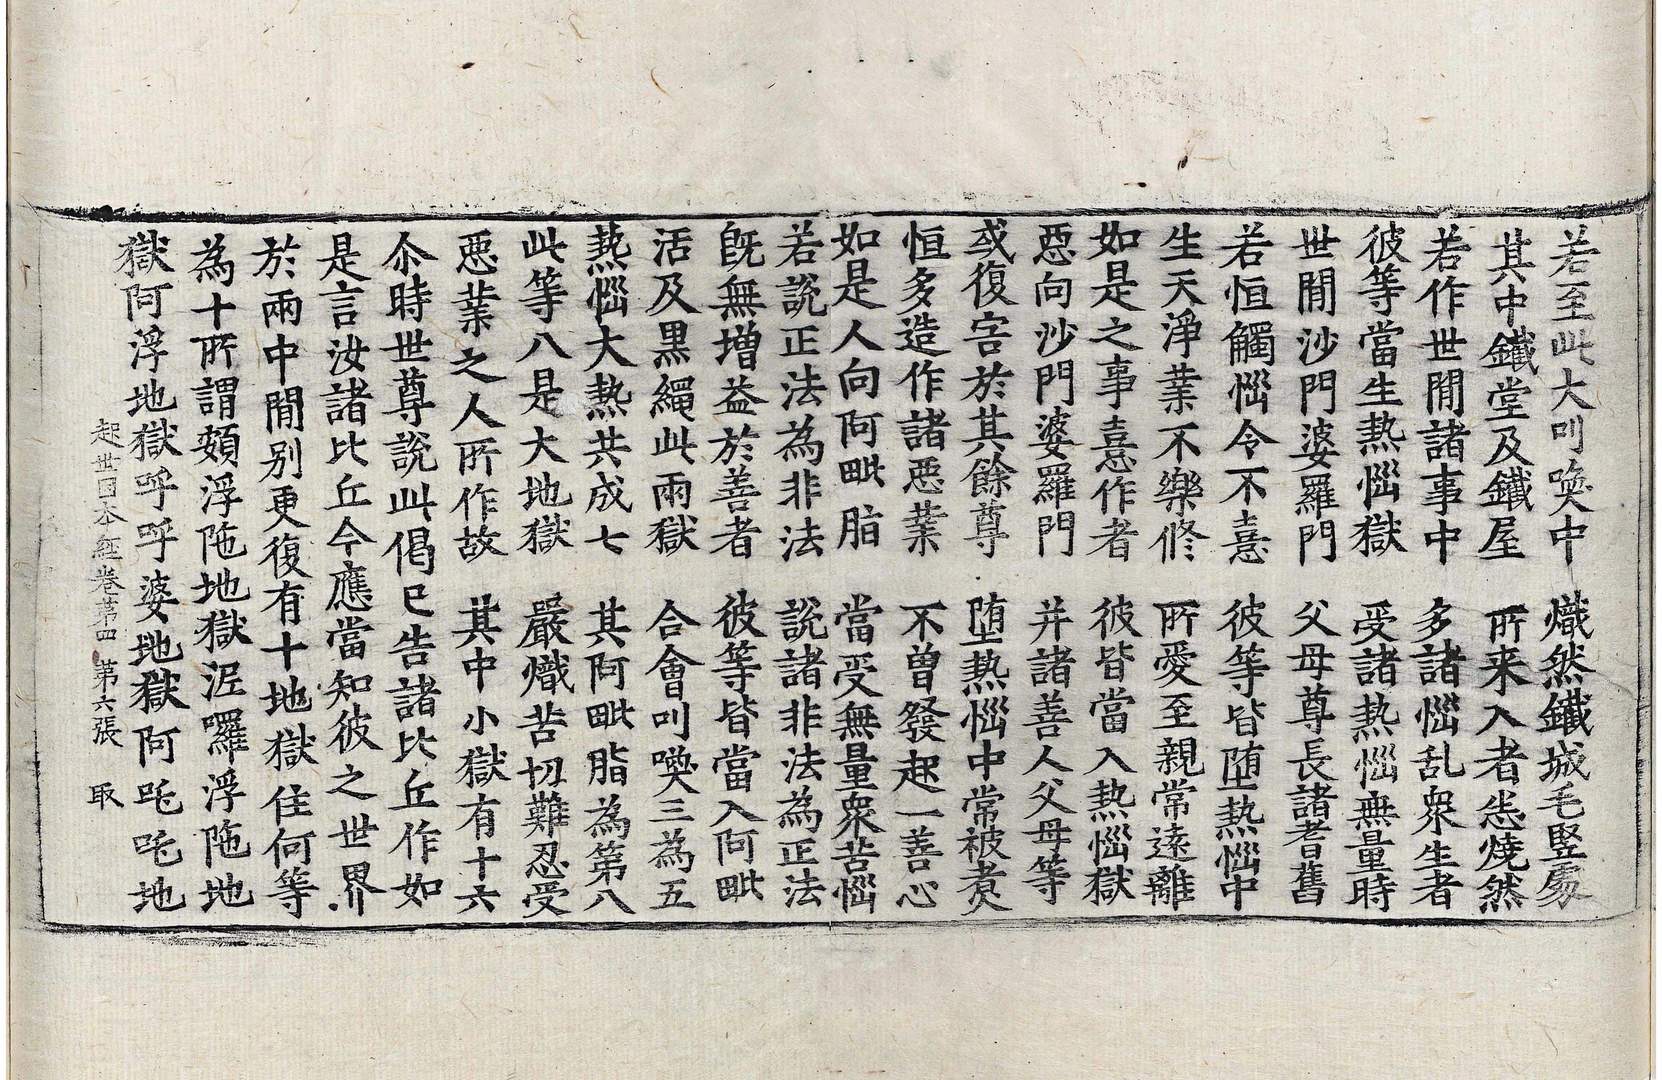 若至此大叫喚中　熾然鐵城毛竪處
其中鐵堂及鐵屋　所来入者恙燒然
若作世間諸事中　多諸惱乱衆生者
彼等當生热惱獄　受諸热惱無量時
世間沙門婆羅門　父母尊長諸耆舊
若恒觸惱令不憙　彼等皆堕热惱中
生天淨業不樂修　所愛至親常遠離
如是之事憙作者　彼皆當入热惱獄
惡向沙門婆羅門　并諸善人父母等
或復害於其餘尊　堕热惱中常被煑
恒多造作諸惡業　不曾發起一善心
如是人向阿毗脂　當受無量衆苦惱
若說正法為非法　說諸非法為正法
旣無增益於善者　彼等皆當入阿毗
活及黒繩此兩獄　合會叫喚三為五
热惱大热共成七　其阿毗脂為第八
此等八是大地獄　嚴熾苦切難忍受
惡業之人所作故　其中小獄有十六
尒時世尊說此偈已告諸比丘作如
是言汝諸比丘今應當知彼之世界
於兩中間别更復有十地獄住何等
為十所謂頞浮陁地獄泥囉浮陁地
獄阿浮地獄呼呼婆地獄阿吒吒地
起世因本經卷第四　第六張　取